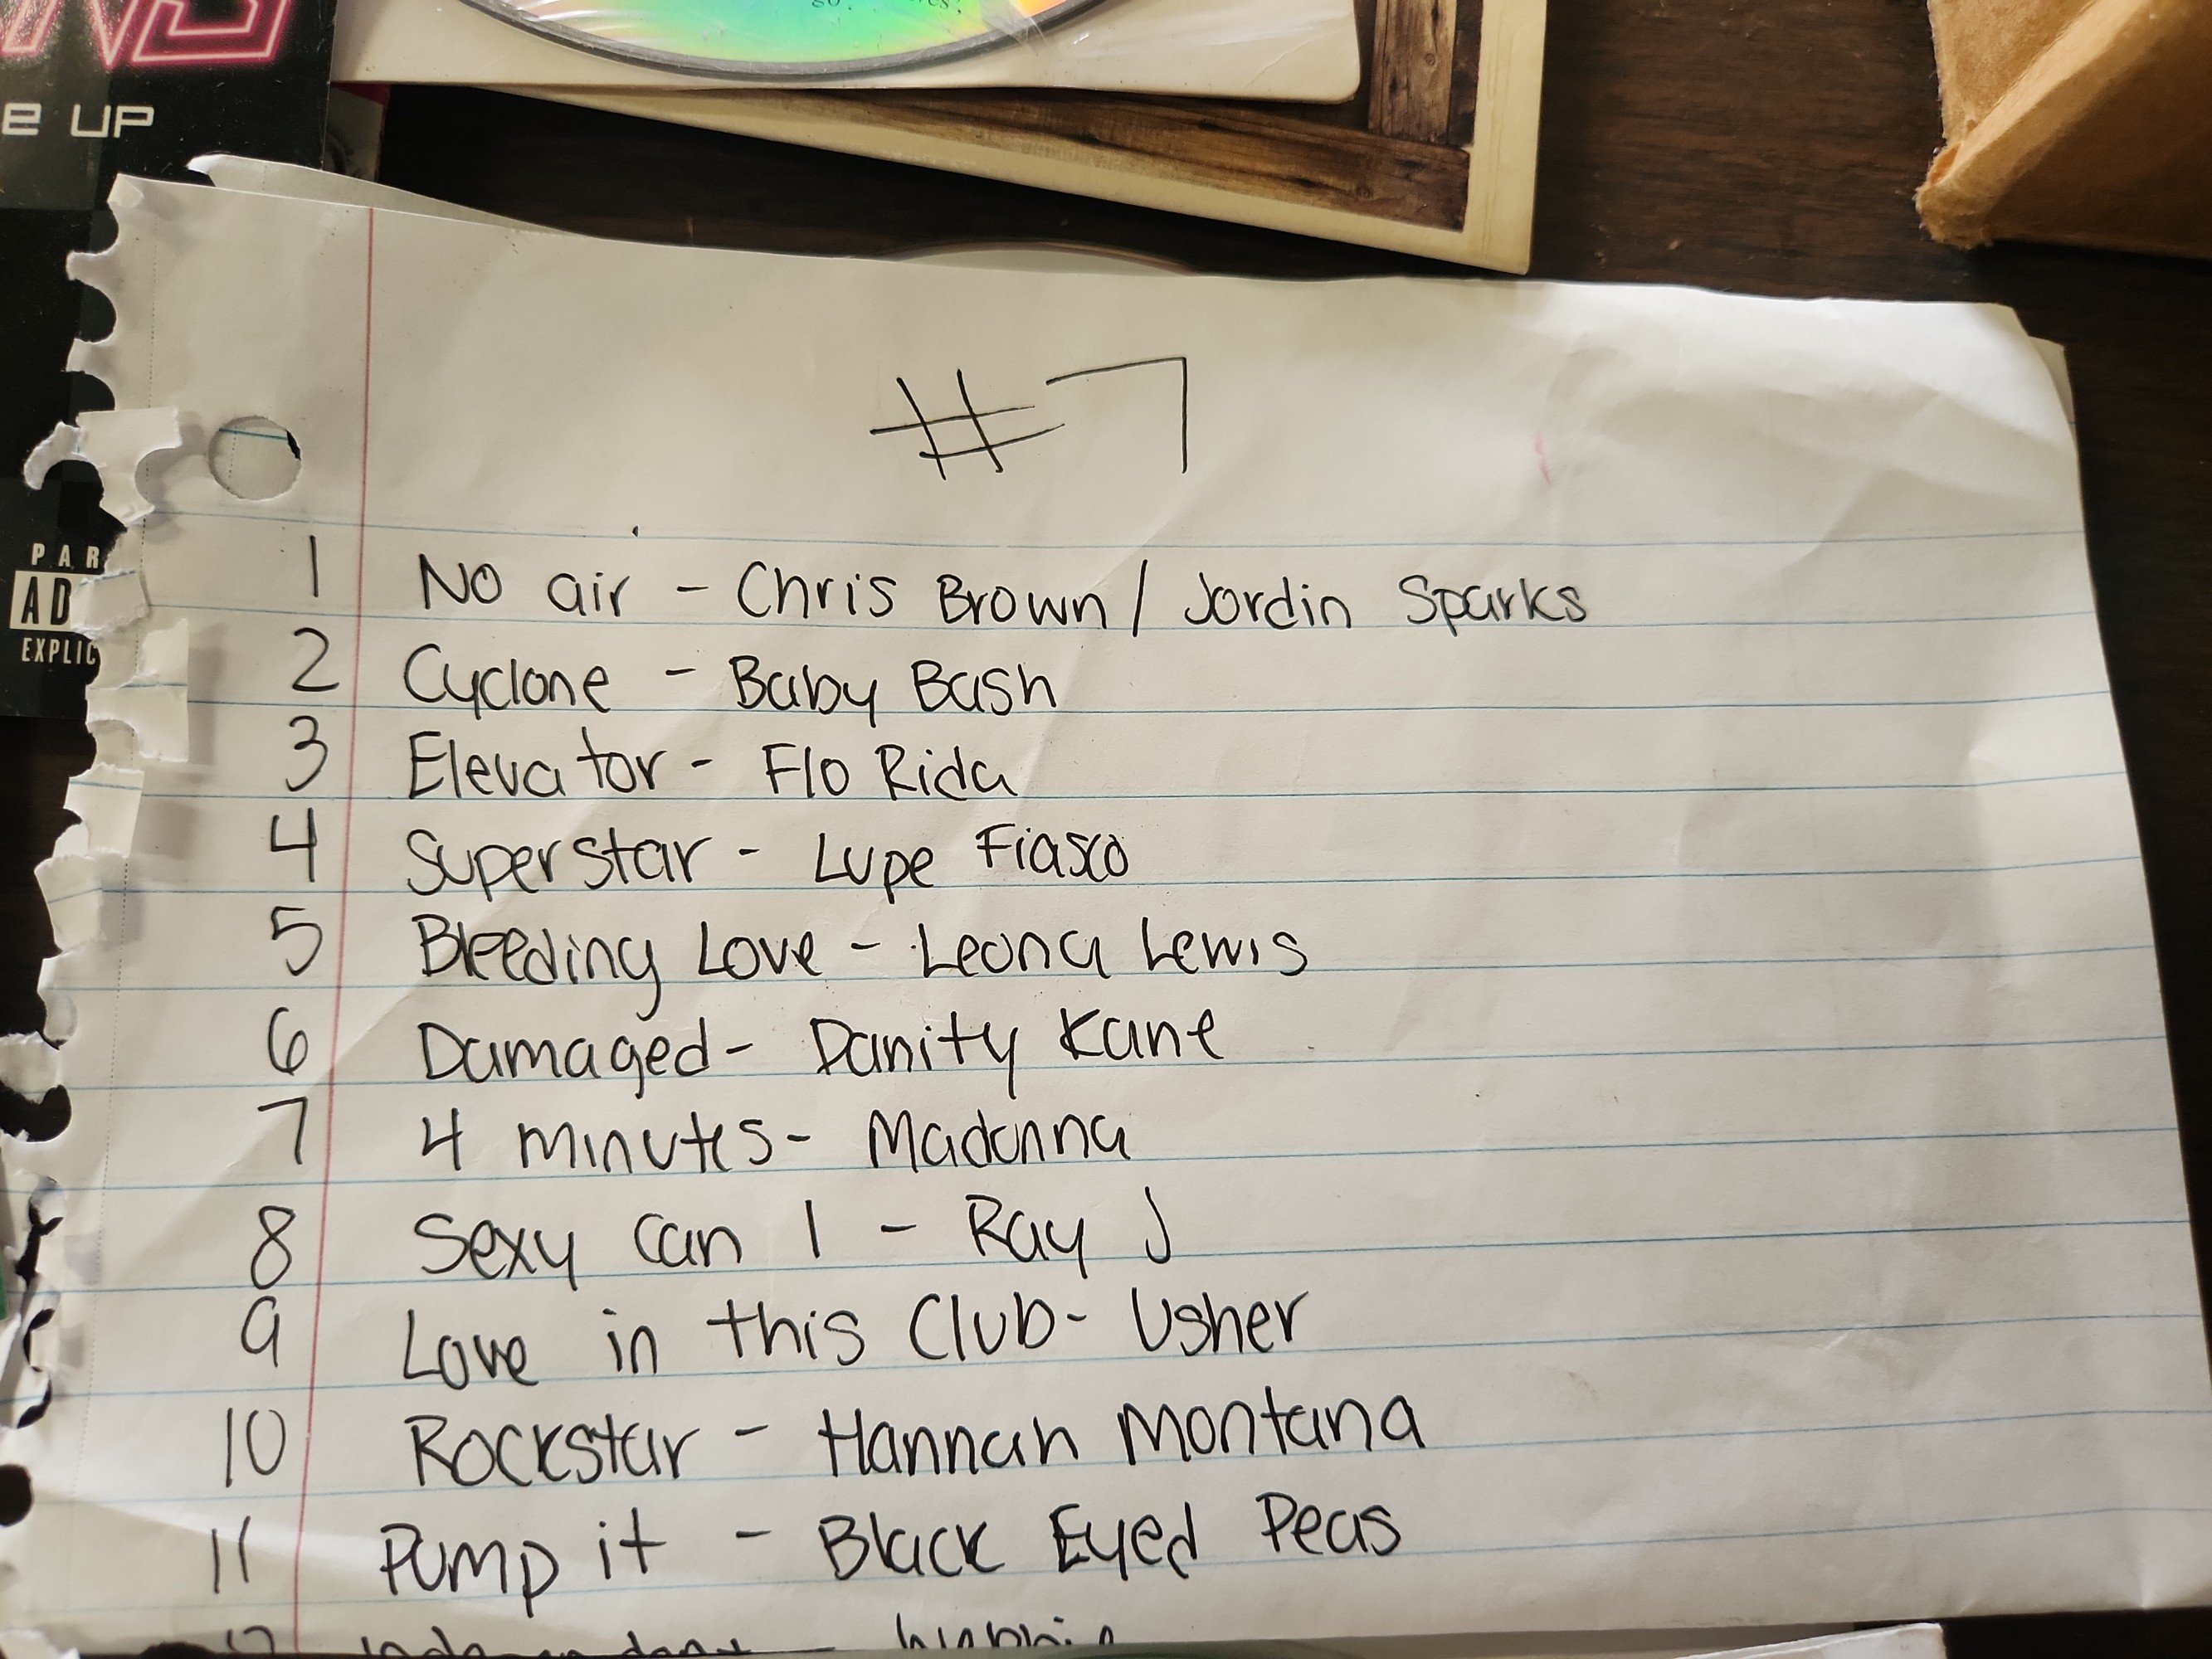 e UP
PAR
AD
EXPLIC
#7
1 No air - Chris Brown / Jordin Sparks
2 Cyclone - Baby Bash
3 Elevator - Flo Rida
4 Superstar - Lupe Fiasco
5 Bleeding Love - Leona Lewis
6 Damaged - Danity Kane
7 4 minutes - Madonna
8 Sexy Can I - Ray J
9 Love in this Club - Usher
10 Rockstar - Hannah Montana
11 Pump it - Black Eyed Peas